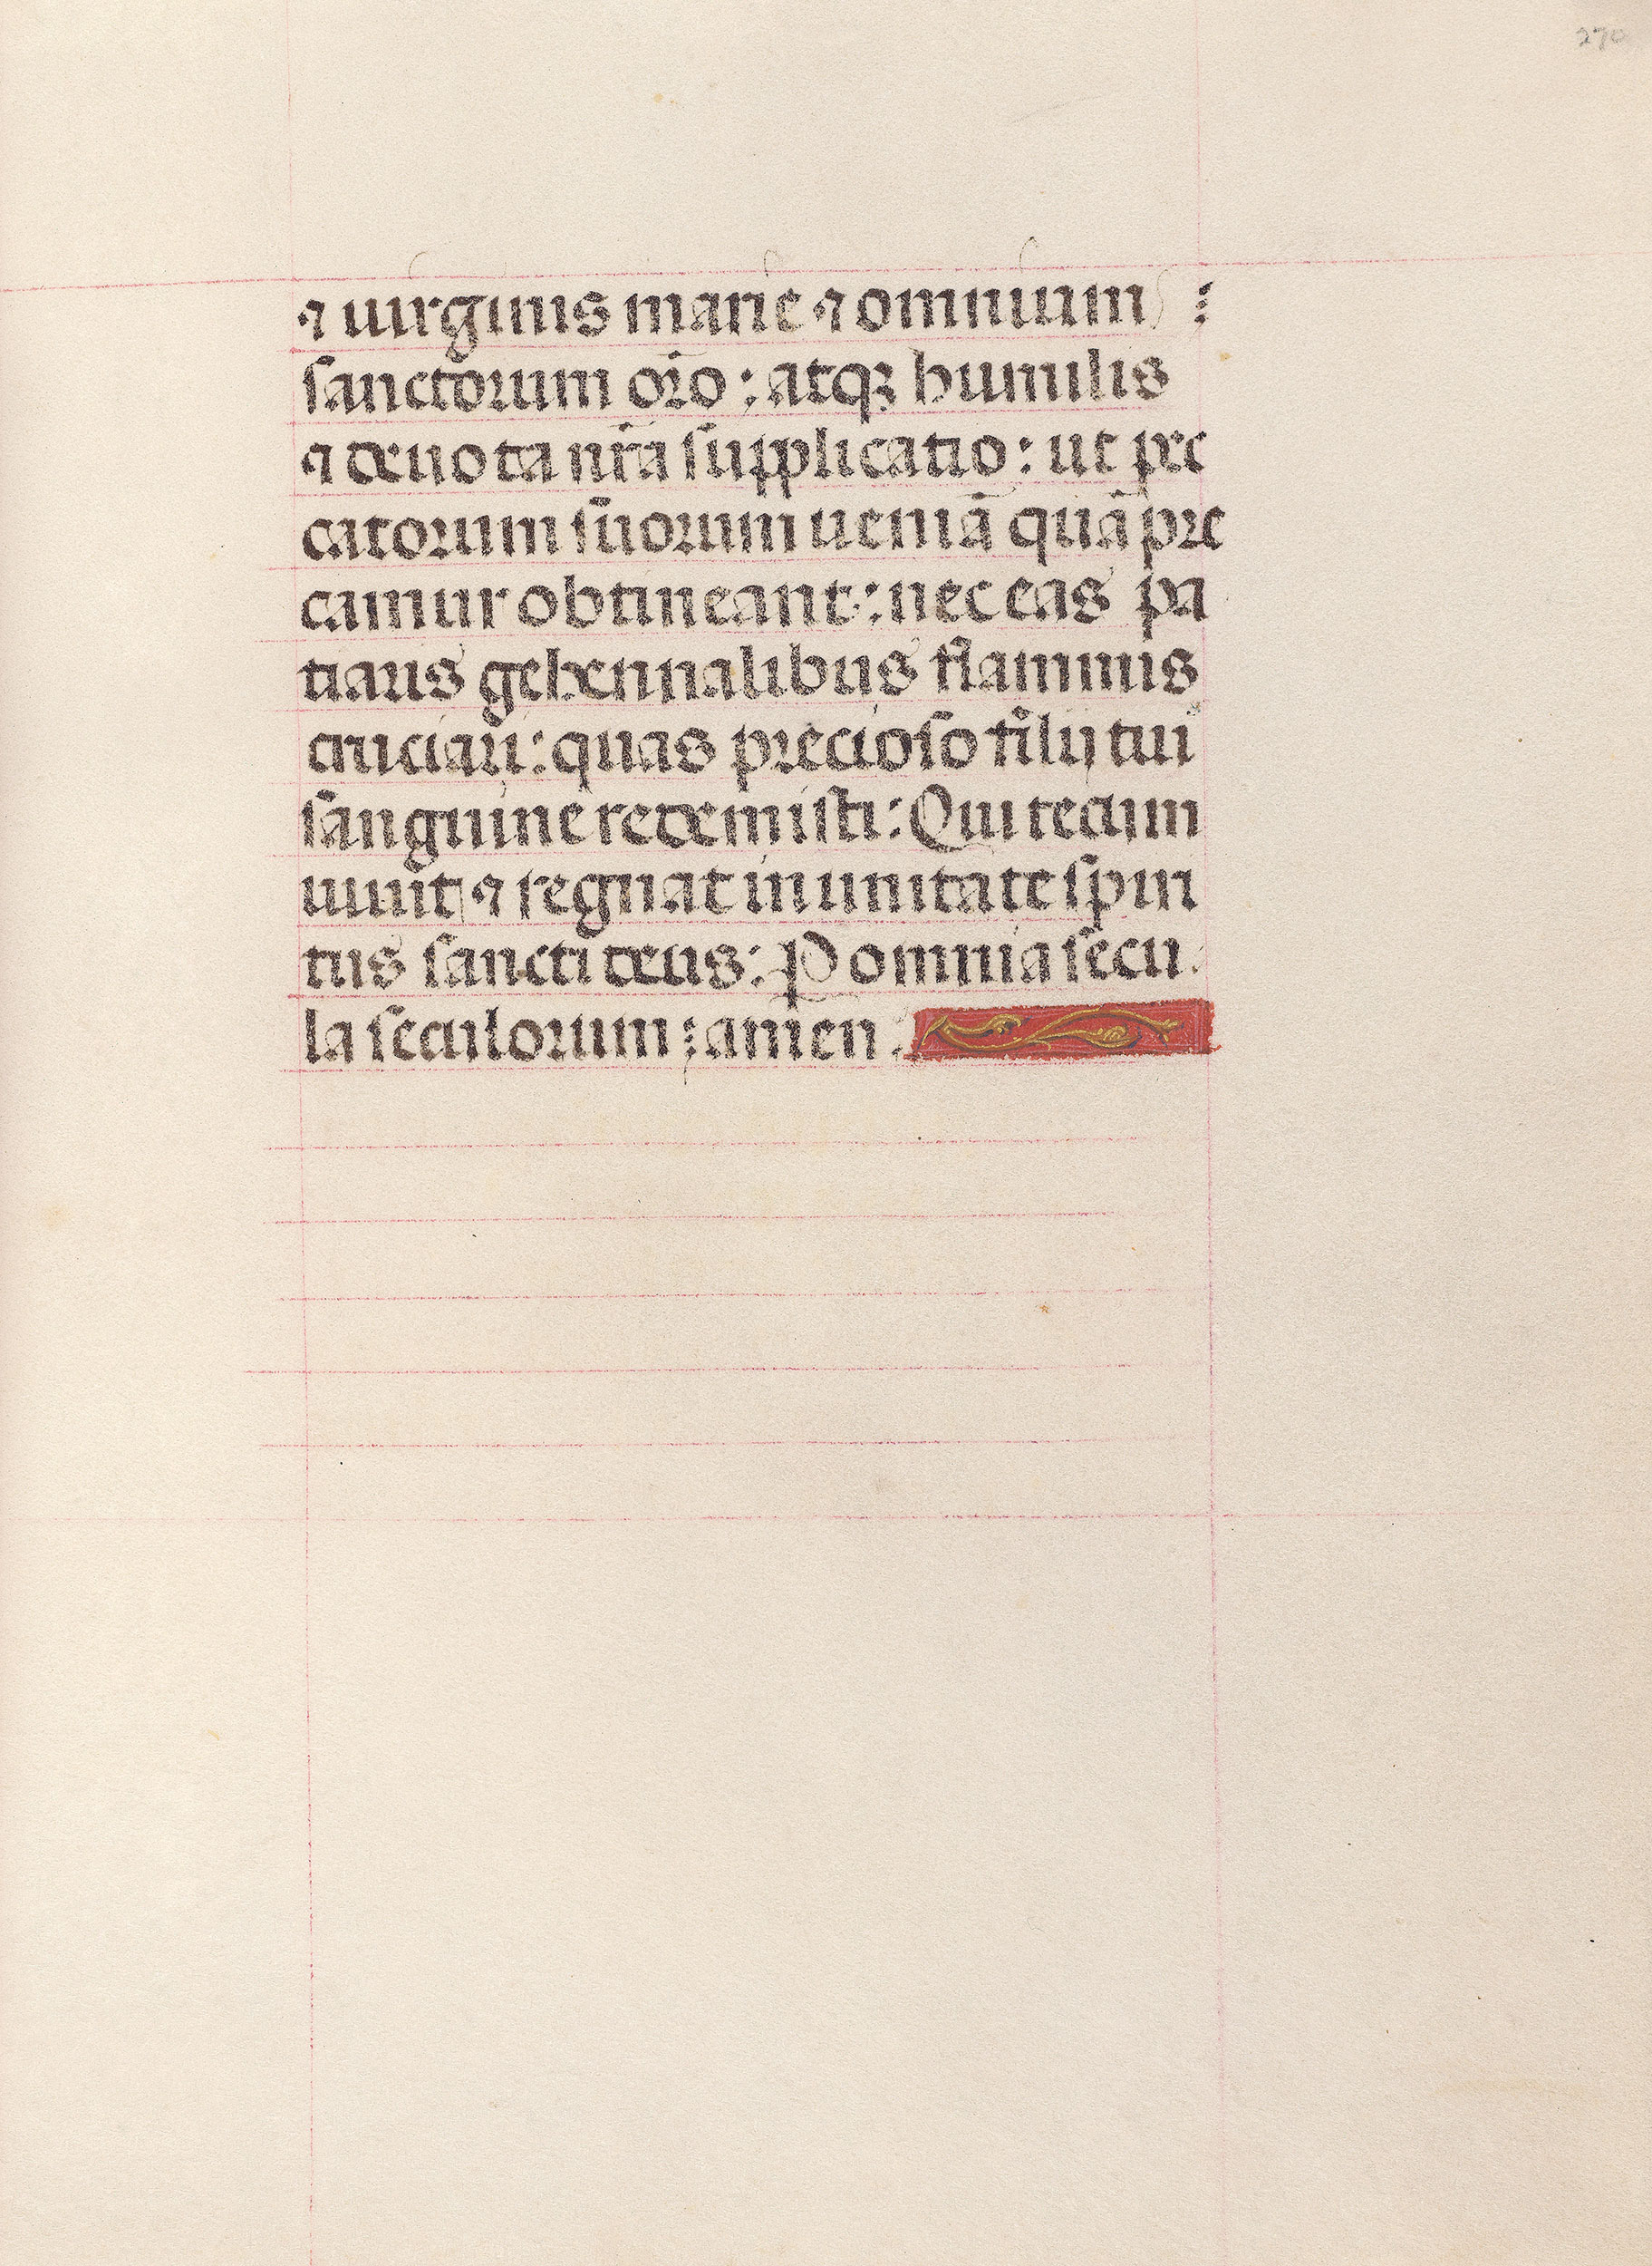 270
⁊ uirginis marie ⁊ omnium :
sanctorum or̄o : atqꝫ humilis
⁊ deuota nr̄a supplicatio : ut pec
catorum suorum ueniā quā pre
camur obtineant : nec eas pa
tiaris gehennalibus flammis
cruciari : quas precioso filij tui
sanguine redemisti : Qui tecum
uiuit ⁊ regnat in unitate spiri
tus sancti deus : P omnia secu
la seculorum : amen .